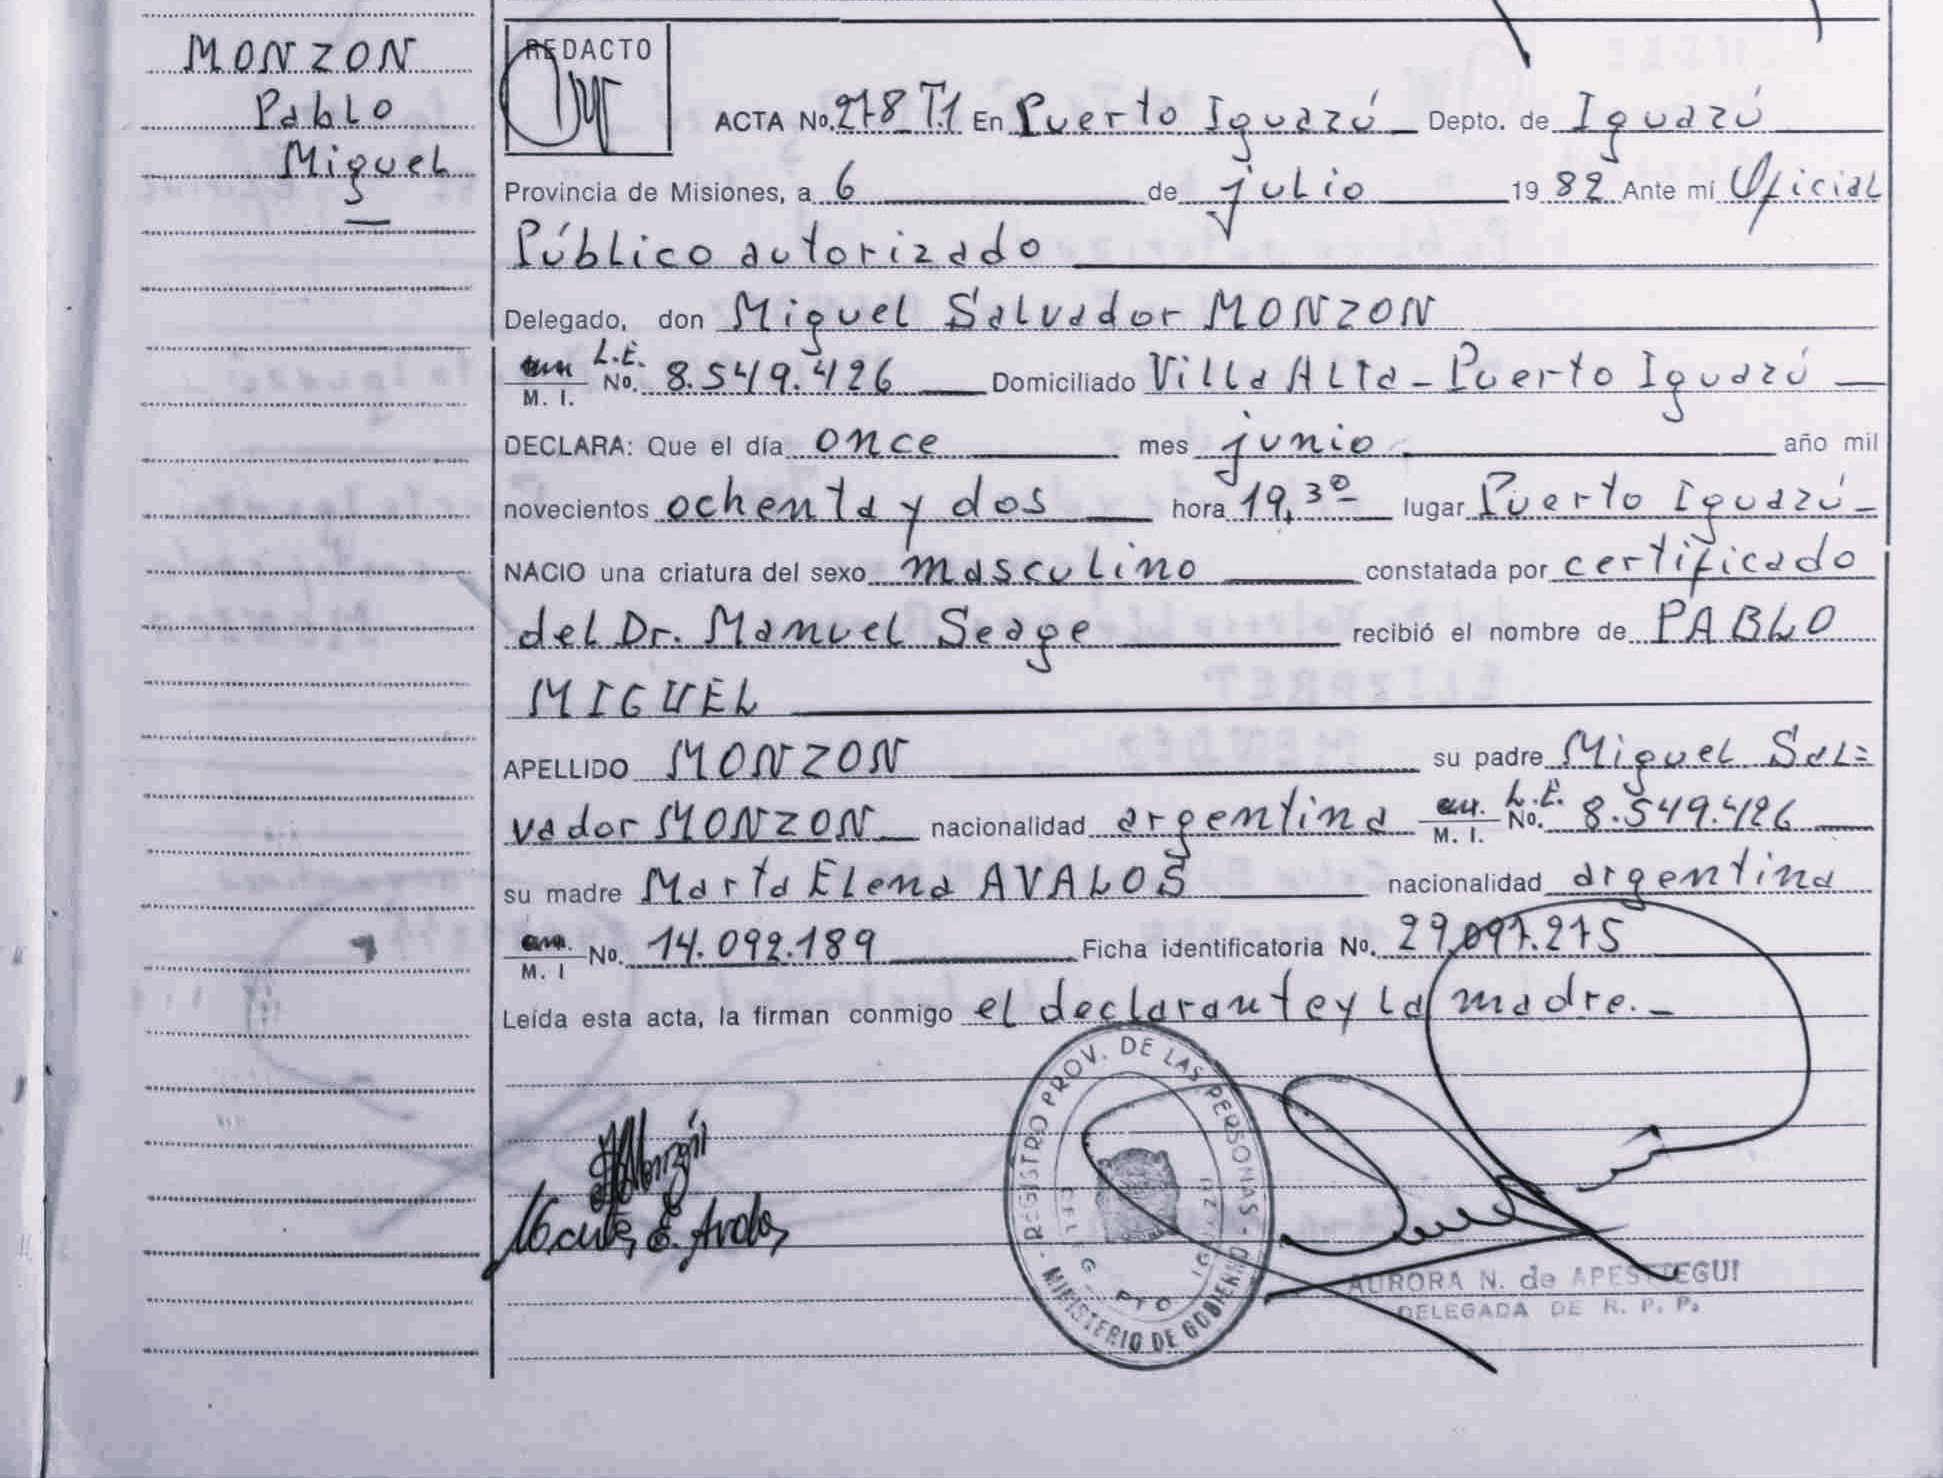 MONZON
Pablo
Miguel
REDACTO
ACTA No. 278 T1 En Puerto Iguazú Depto. de Iguazú
Provincia de Misiones, a 6 de julio 1982 Ante mí Oficial
Público autorizado
Delegado, don Miguel Salvador MONZON
M. I. L.E. No. 8.549.426 Domiciliado Villa Alta - Puerto Iguazú
DECLARA: Que el día once mes junio año mil
novecientos ochenta y dos hora 19,30 lugar Puerto Iguazú
NACIO una criatura del sexo masculino constatada por certificado
del Dr. Manuel Seage recibió el nombre de PABLO
MIGUEL
APELLIDO MONZON su padre Miguel Sal=
vador MONZON nacionalidad argentina M. I. L.E. No. 8.549.426
su madre Marta Elena AVALOS nacionalidad argentina
M. I No. 14.092.189 Ficha identificatoria No. 29.097.275
Leída esta acta, la firman conmigo el declarante y la madre.-
Monzón
Marta E. Avalos
REGISTRO PROV. DE LAS PERSONAS - MINISTERIO DE GOBIERNO
DELEG. PTO IGUAZU
AURORA N. de APESTEGUI
DELEGADA DE R. P. P.